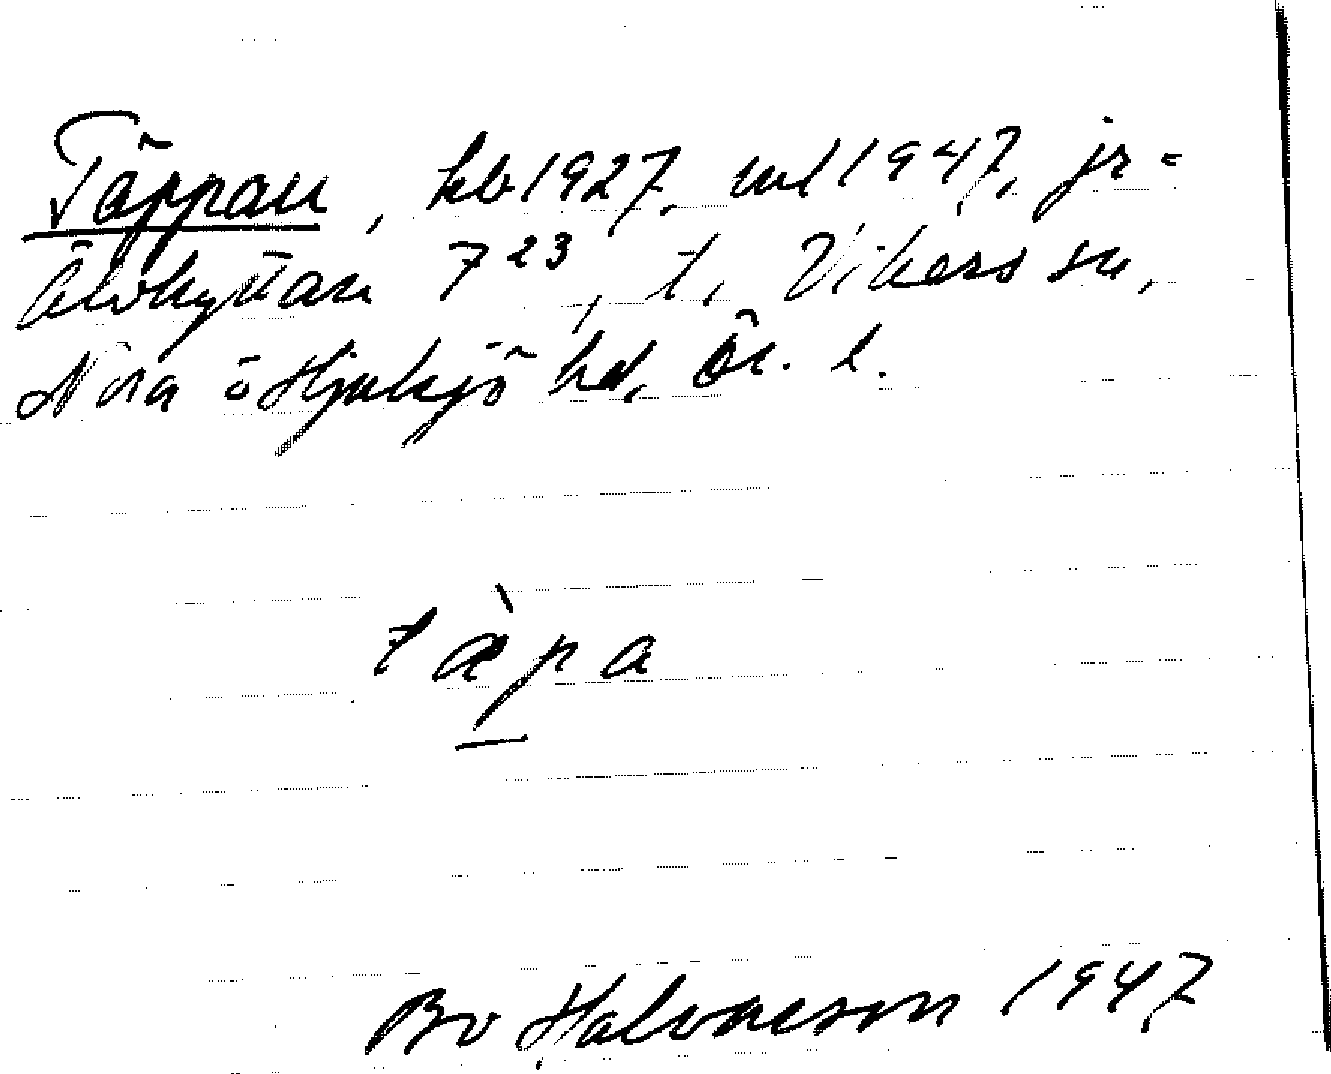 Täppan, kb 1927, ml 1947, jr =
Älvhyttan 7 23, t. Vikers sn,
Nora o Hjulsjö hd, Ör. l.
tàpa
Bo Halvarson 1947